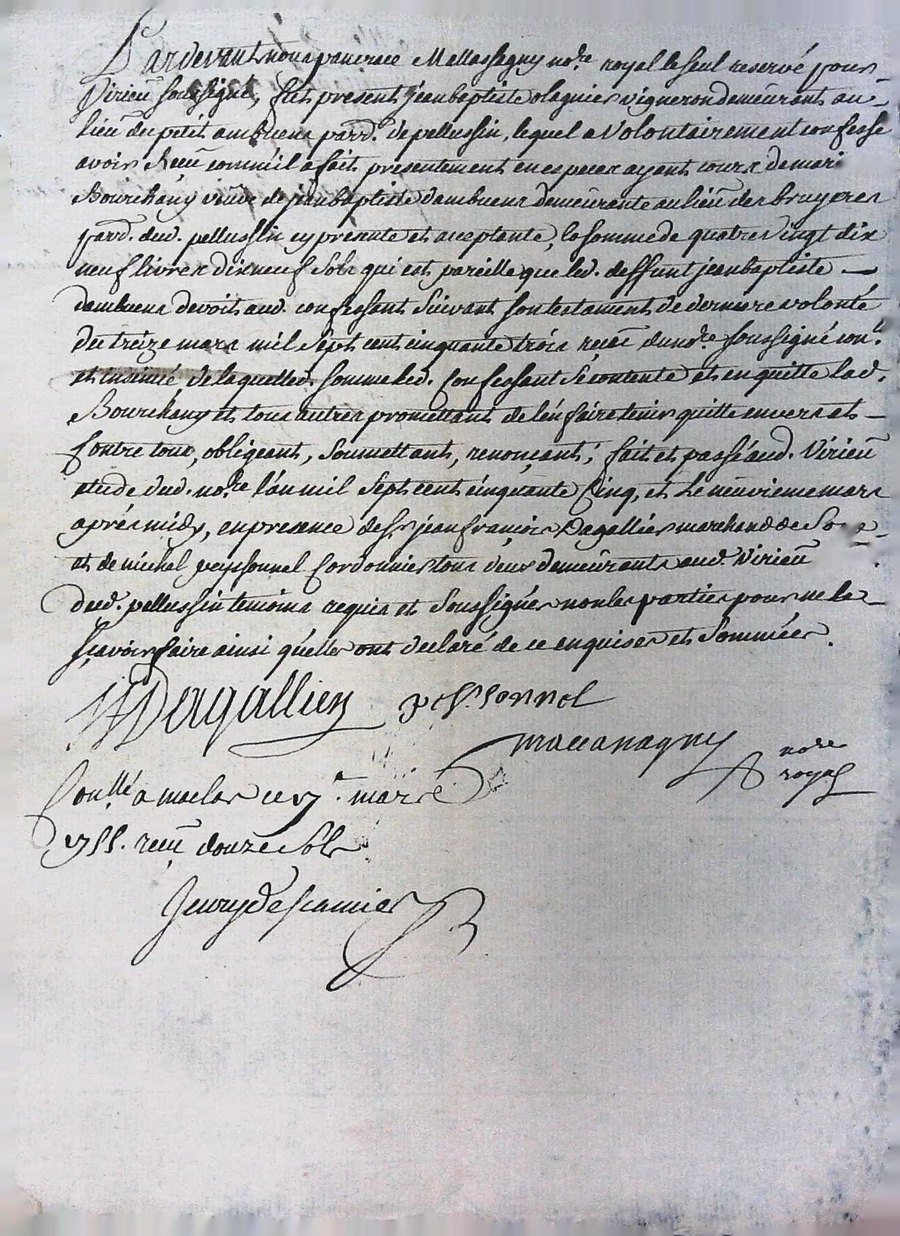 Pardevant nous pancrace Mallassagny no.re royal le seul reservé pour
Virieu soussigné, fut present jean baptiste olagnier vigneron demeurant au
lieu du petit ambuens parr.e de pellussin, lequel a volontairement confessé
avoir Receu comme il a fait presentement en especes ayant cours de mari
Bourchany veuve de jean baptiste dambuens demeurante au lieu des bruyeres
parr. dud. pellussin cy presente et acceptante, la somme de quatre vingt dix
neuf livres dix neuf sols qui est pareille que led. deffunt jean baptiste
dambuens devoit aud. confessant suivant son testament de derniere volonté
du treize mars mil sept cent cinquante trois receu du no.re soussigné con.lé
et insinué de laquelle d. somme led. Confessant se contente et en quitte lad.
Bourchany et tous autres promettant de l'en faire tenir quitte envers et
Contre tous, obligeant, soumettant, renonçant; fait et passé aud. Virieu
etude dud. no.re l'an mil sept cent cinquante Cinq, et le neuvieme mars
aprés midy, en presence de s.r jean françois Dagallier marchand de
et de michel peyssonnel Cordonnier tous deux demeurants aud. Virieu
dud. pellussin temoins requis et soussignés non les parties pour ne le
sçavoir faire ainsi qu'elles ont declaré de ce enquises et sommées.
Dagallier
maccanagny no.re
royal
Con.llé a maclas ce 17.e mars
1755. receu douze sols